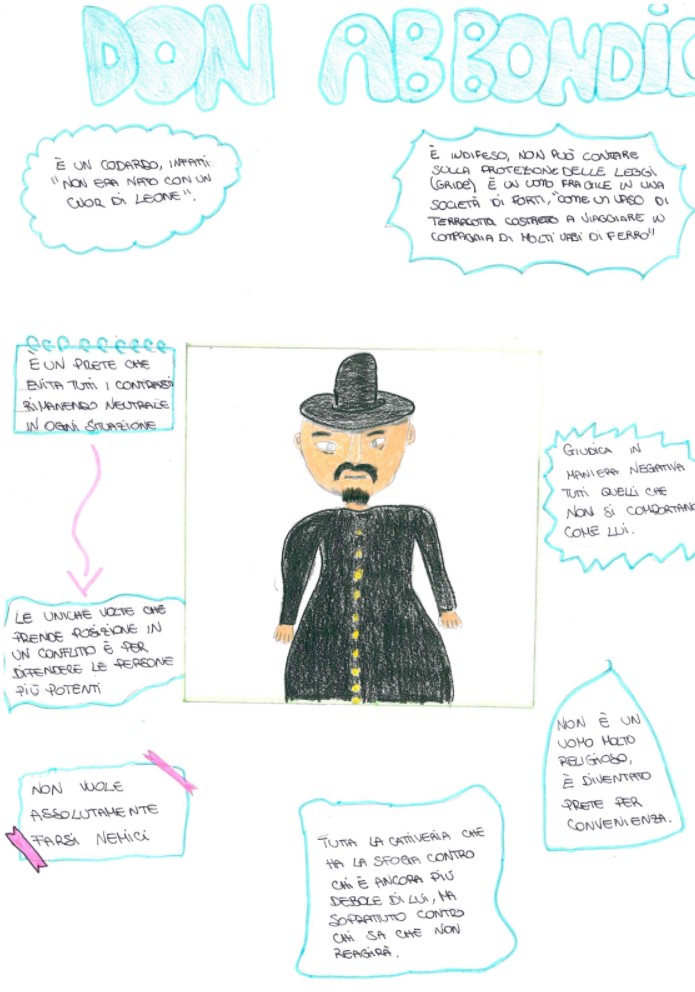 DON ABBONDIO
È UN CODARDO, INFATTI
"NON ERA NATO CON UN
CUOR DI LEONE".
È INDIFESO, NON PUÒ CONTARE
SULLA PROTEZIONE DELLE LEGGI
(GRIDE) È UN UOMO FRAGILE IN UNA
SOCIETÀ DI FORTI, "COME UN VASO DI
TERRACOTTA COSTRETTO A VIAGGIARE IN
COMPAGNIA DI MOLTI VASI DI FERRO"
È UN PRETE CHE
EVITA TUTTI I CONTRASTI
RIMANENDO NEUTRALE
IN OGNI SITUAZIONE
GIUDICA IN
MANIERA NEGATIVA
TUTTI QUELLI CHE
NON SI COMPORTANO
COME LUI.
LE UNICHE VOLTE CHE
PRENDE POSIZIONE IN
UN CONFLITTO È PER
DIFENDERE LE PERSONE
PIÙ POTENTI
NON È UN
UOMO MOLTO
RELIGIOSO,
È DIVENTATO
PRETE PER
CONVENIENZA.
NON VUOLE
ASSOLUTAMENTE
FARSI NEMICI
TUTTA LA CATTIVERIA CHE
HA LA SFOGA CONTRO
CHI È ANCORA PIÙ
DEBOLE DI LUI, MA
SOPRATTUTTO CONTRO
CHI SA CHE NON
REAGIRÀ.